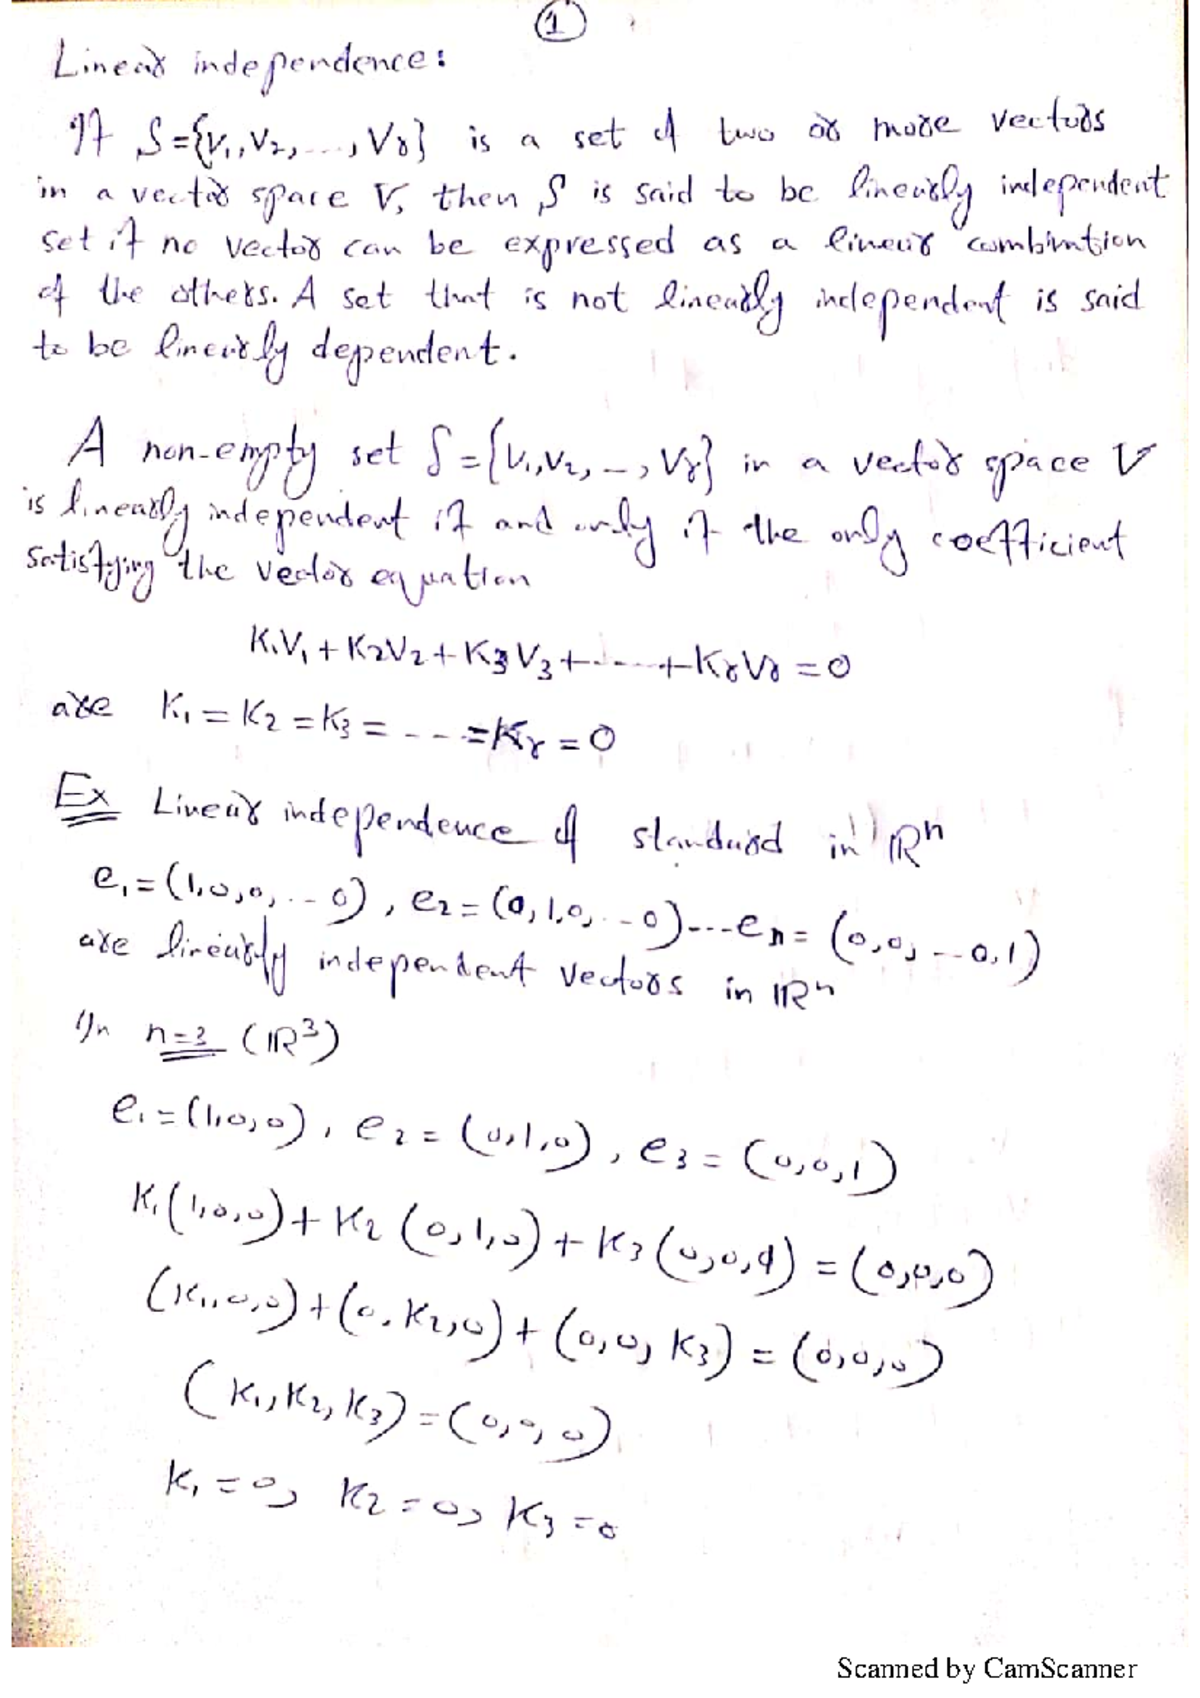 1
Linear independence:
If S={V₁,V₂,...,Vr} is a set of two or more vectors
in a vector space V, then S is said to be linearly independent
set if no vector can be expressed as a linear combintion
of the others. A set that is not linearly independent is said
to be linearly dependent.
A non-empty set S={V₁,V₂,-,Vr} in a vector space V
is linearly independent if and only if the only coefficient
satisfying the vector equation
K₁V₁+K₂V₂+K₃V₃+.....+KrVr=0
are K₁=K₂=K₃=---=Kr=0
Ex Linear independence of standard in ℝⁿ
e₁=(1,0,0,..-0), e₂=(0,1,0,..-0)---en=(0,0,--0,1)
are linearly independent vectors in ℝⁿ
In n=3 (ℝ³)
e₁=(1,0,0), e₂=(0,1,0), e₃=(0,0,1)
K₁(1,0,0)+K₂(0,1,0)+K₃(0,0,1)=(0,0,0)
(K₁,0,0)+(0,K₂,0)+(0,0,K₃)=(0,0,0)
(K₁,K₂,K₃)=(0,0,0)
K₁=0, K₂=0, K₃=0
Scanned by CamScanner